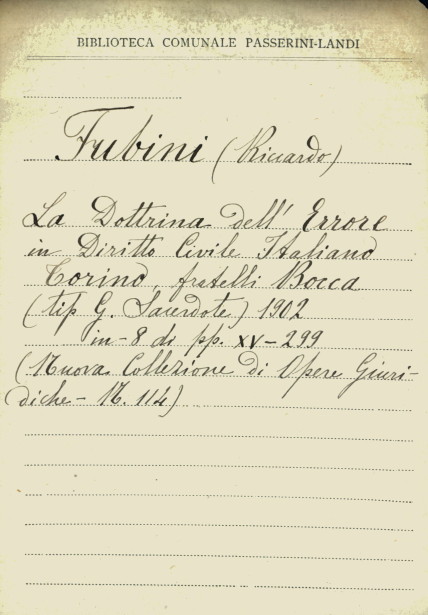 BIBLIOTECA COMUNALE PASSERINI-LANDI
Fubini (Riccardo)
La Dottrina dell' Errore
in Diritto Civile Italiano
Torino, fratelli Bocca
(tip G. Sacerdote) 1902
in-8 di pp. XV-299
(Nuova Collezione di Opere Giuri-
diche - N. 114)